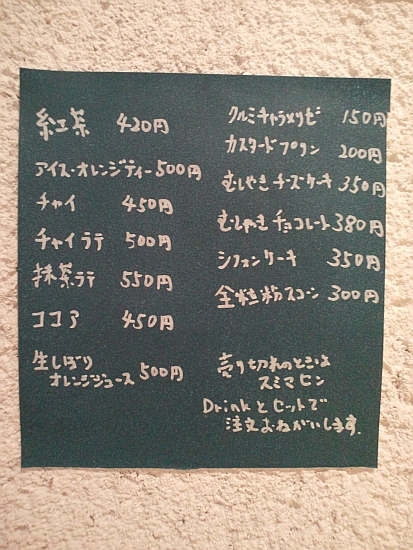 紅茶 420円
アイス・オレンジティー 500円
チャイ 450円
チャイラテ 500円
抹茶ラテ 550円
ココア 450円
生しぼり
オレンジジュース 500円
クルミキャラメリゼ 150円
カスタードプリン 200円
むしやきチーズケーキ 350円
むしやきチョコレート 380円
シフォンケーキ 350円
全粒粉スコーン 300円
売り切れのときは
スミマセン
Drinkとセットで
注文おねがいします。